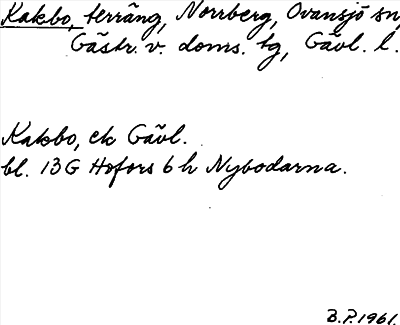 Kakbo, terräng, Norrberg, Ovansjö sn,
Gästr. v. doms. tg, Gävl. l.
Kakbo, ek Gävl.
bl. 13G Hofors 6 h Nybodarna.
B.P. 1961.